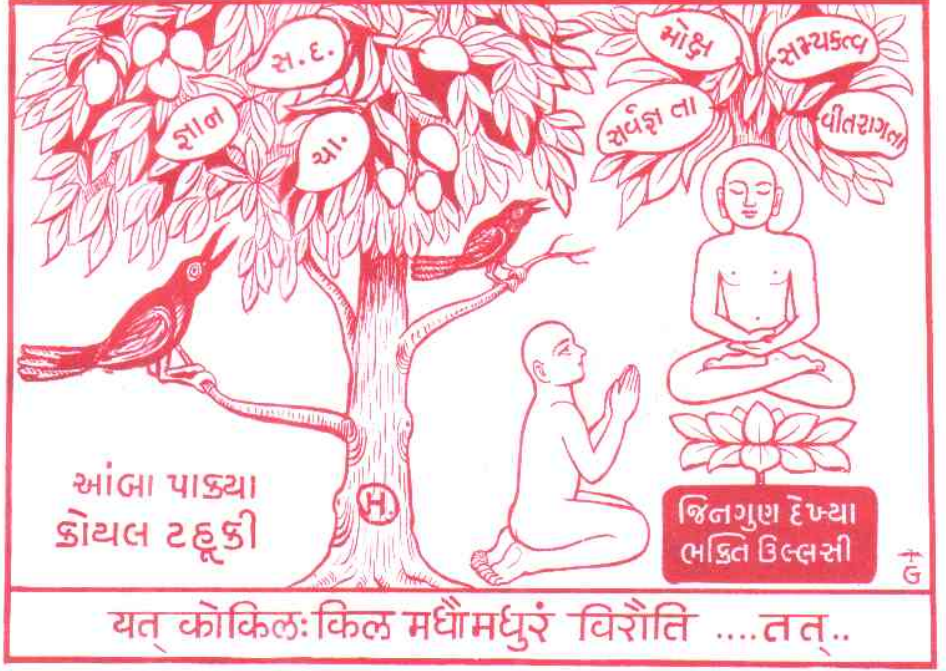 સ.દ.
જ્ઞાન
ચા.
મોક્ષ
સમ્યકત્વ
સર્વજ્ઞ તા
વીતરાગતા
આંબા પાક્યા
કોયલ ટહૂકી
મ.
જિનગુણ દેખ્યા
ભક્તિ ઉલ્લસી
यत् कोकिलः किल मधौमधुरं विरौति ....तत्..